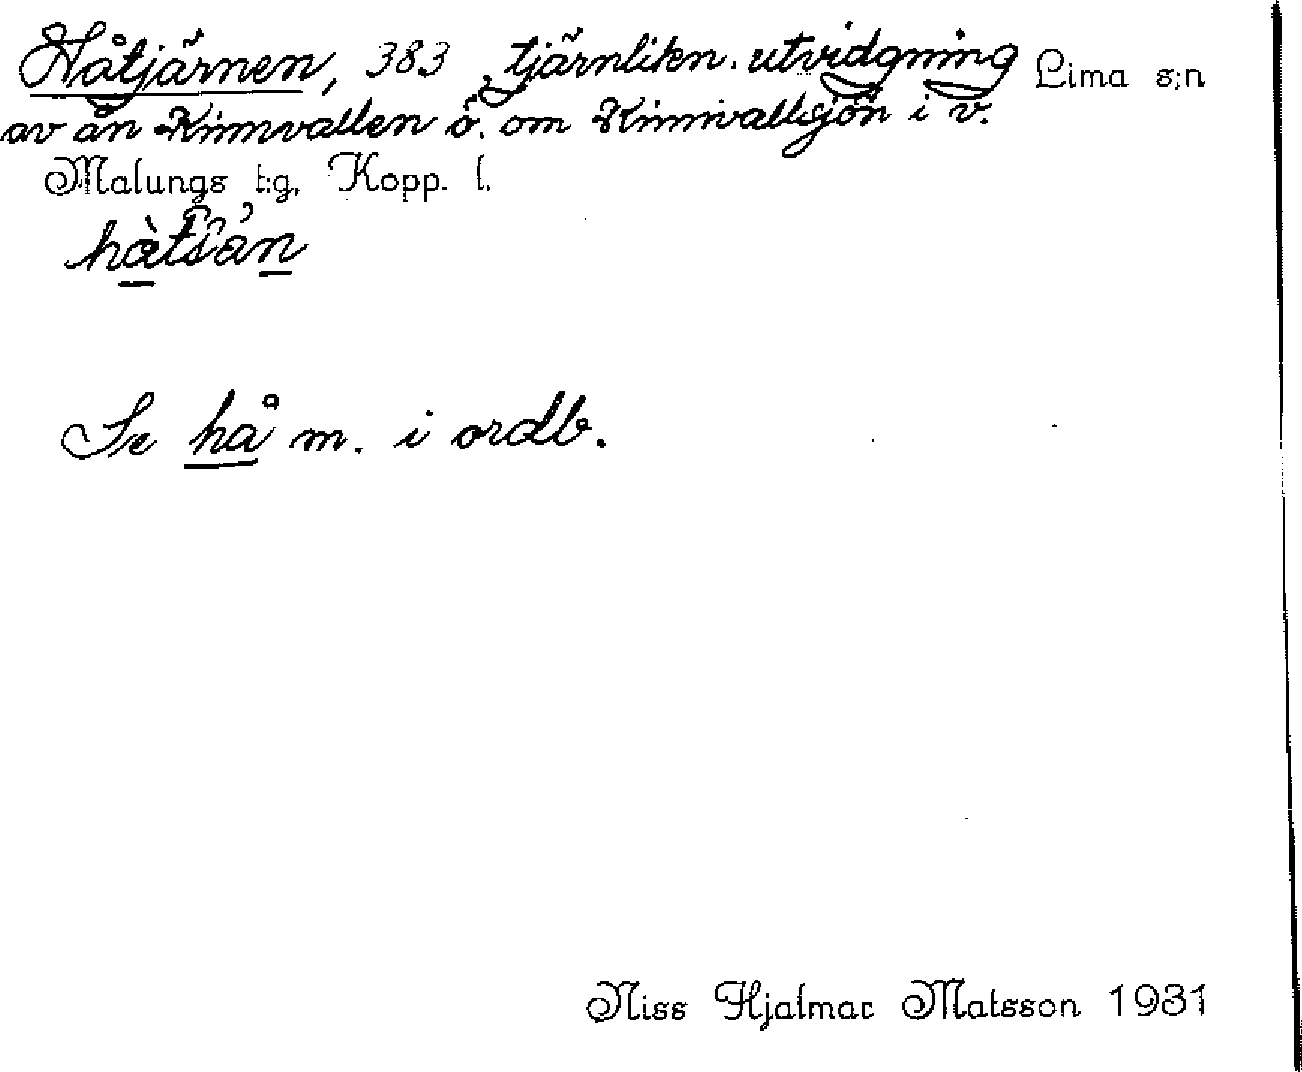 Håtjärnen, 383, tjärnlikn. utvidgning Lima s:n
av ån Kinnvallen ö. om Kinnvallsjön i v.
Malungs t:g, Kopp. l.
Se hå m. i ordb.
Niss Hjalmar Matsson 1931